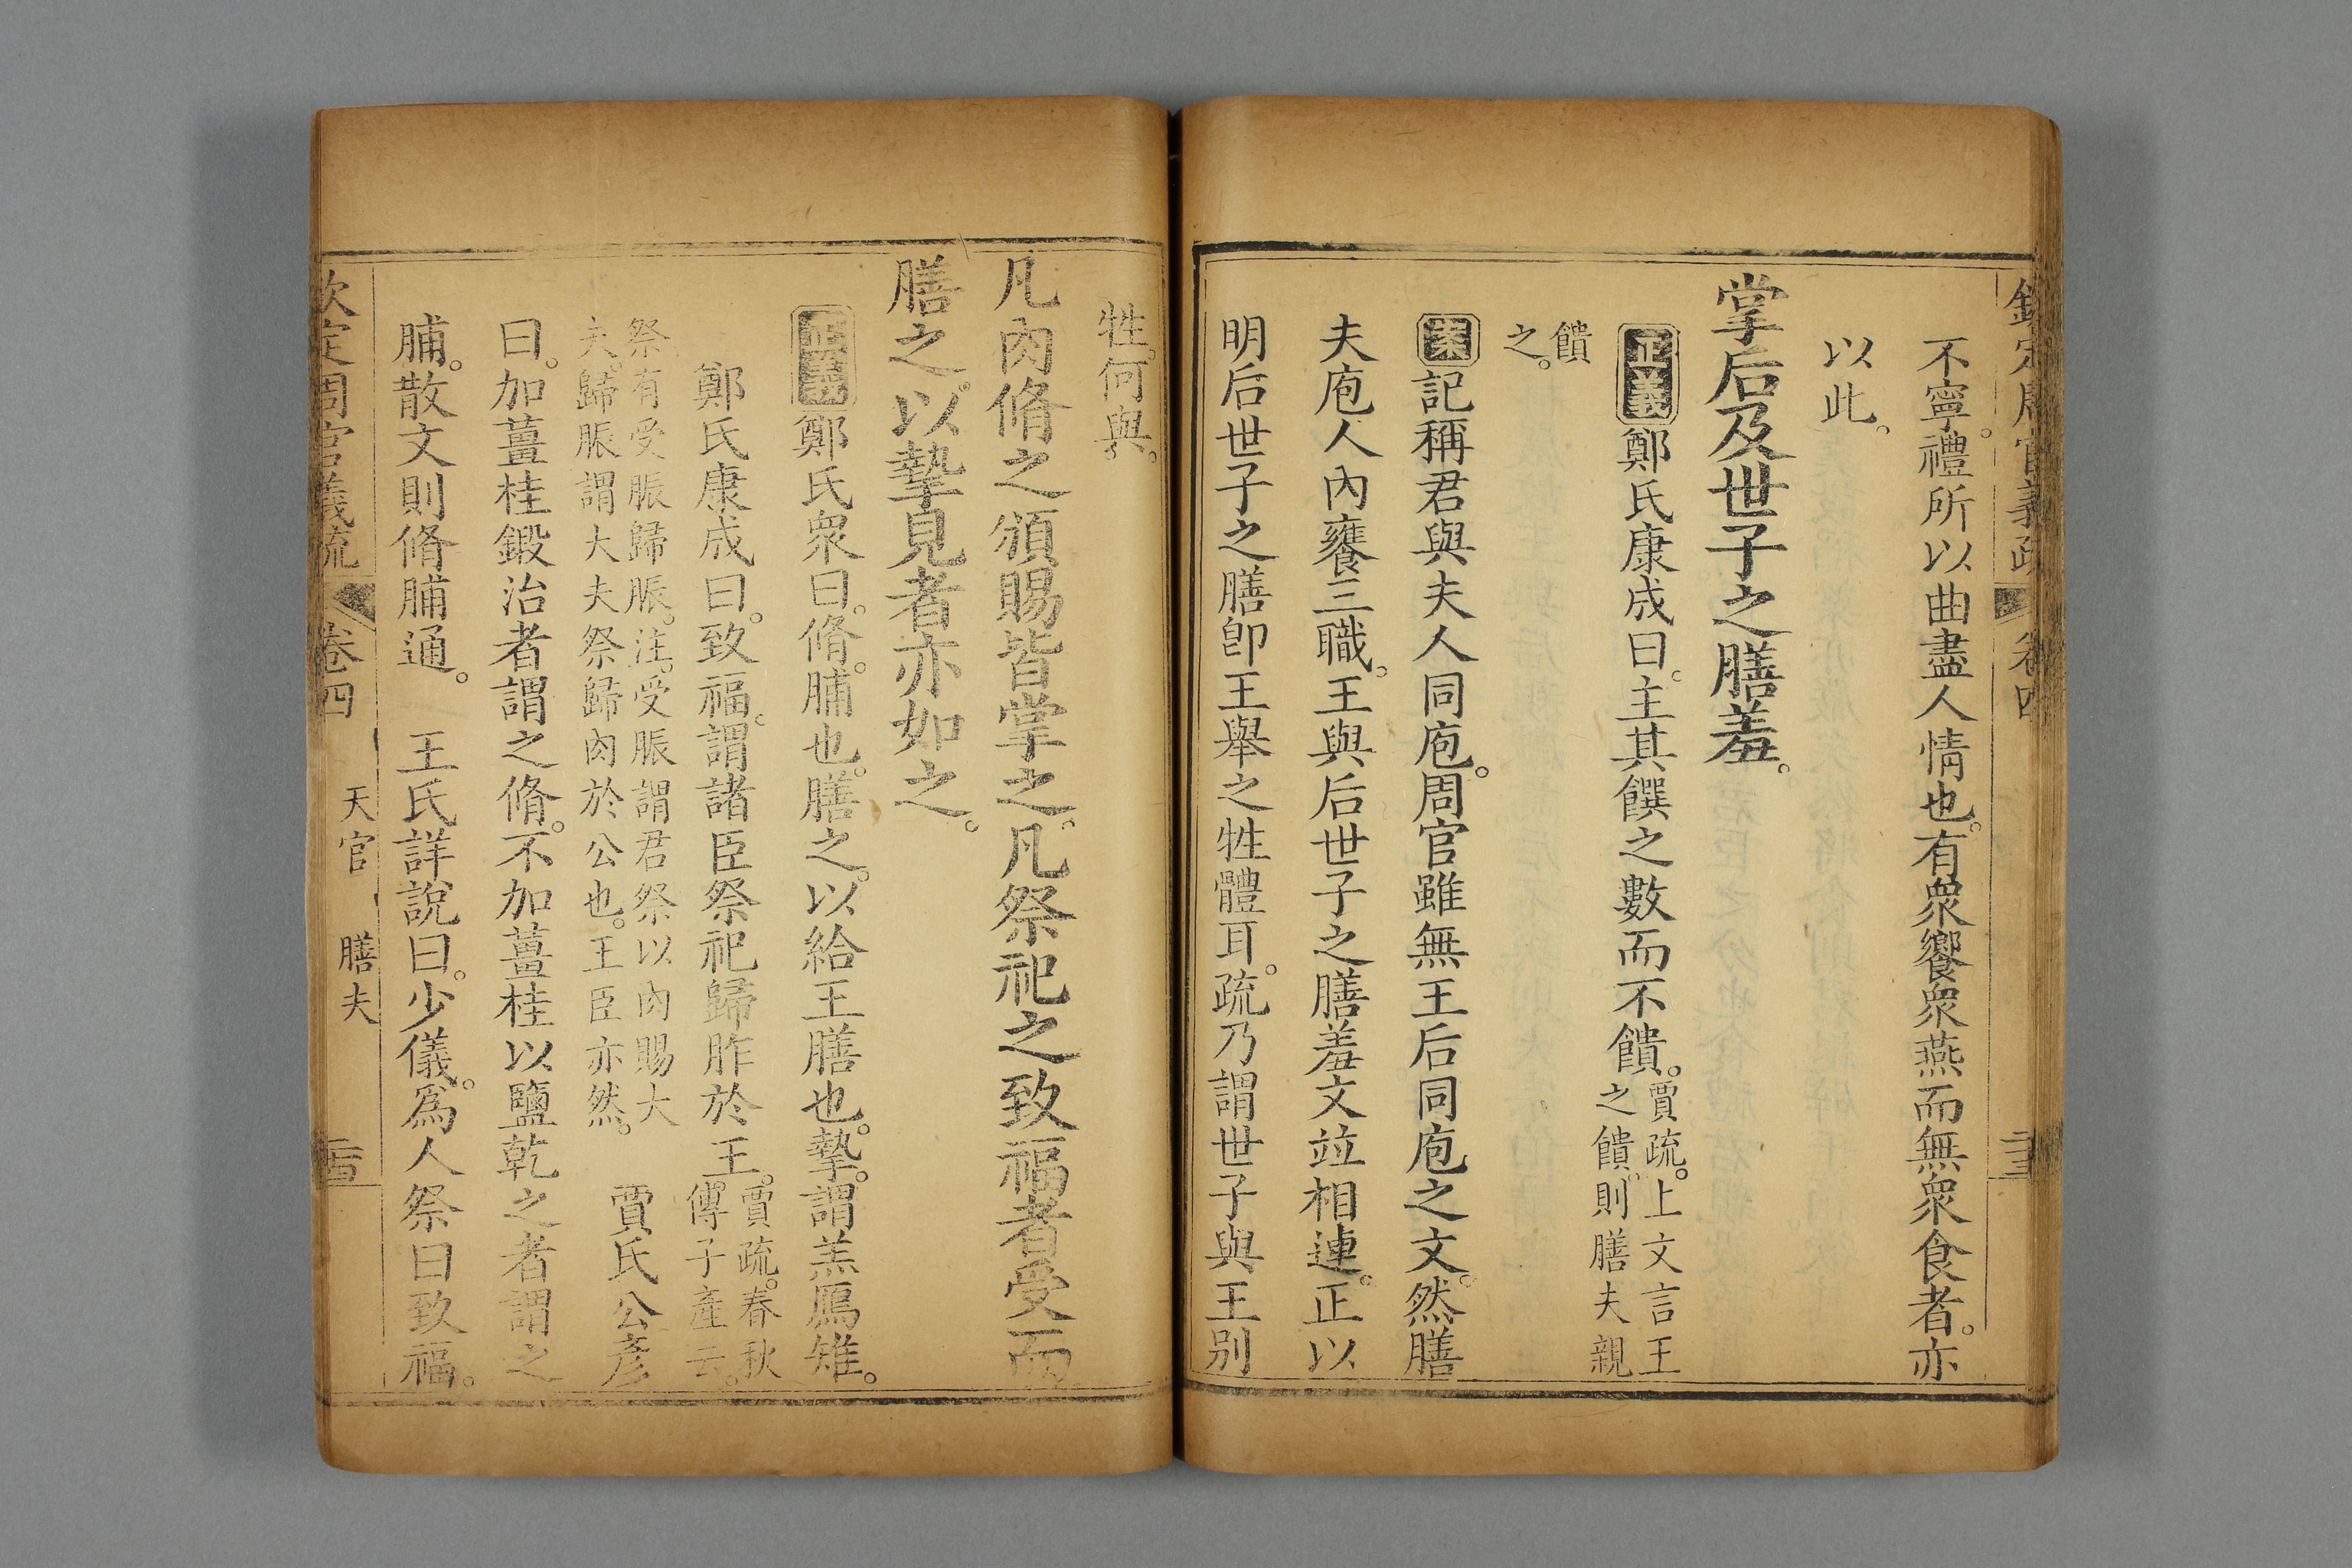 欽定周官義疏 卷四
不寧。禮所以曲盡人情也。有衆饗衆燕而無衆食者。亦
以此。
掌后及世子之膳羞。
正義鄭氏康成曰。主其饌之數而不饋。賈疏。上文言王
之饋。則膳夫親
饋
之。
案記稱君與夫人同庖。周官雖無王后同庖之文。然膳
夫庖人內饔三職。王與后世子之膳羞文竝相連。正以
明后世子之膳卽王舉之牲體耳。疏乃謂世子與王別
牲。何與。
凡肉脩之頒賜皆掌之。凡祭祀之致福者受而
膳之。以摯見者亦如之。
正義鄭氏衆曰。脩。脯也。膳之。以給王膳也。摯。謂羔鴈雉。
鄭氏康成曰。致福。謂諸臣祭祀歸胙於王。賈疏。春秋
傳。子產云。
祭有受脤歸脤。注。受脤謂君祭以肉賜大
夫。歸脤謂大夫祭歸肉於公也。王臣亦然。
賈氏公彥
曰。加薑桂鍛治者謂之脩。不加薑桂以鹽乾之者謂之
脯。散文則脩脯通。 王氏詳說曰。少儀。爲人祭曰致福。
欽定周官義疏 卷四 天官 膳夫